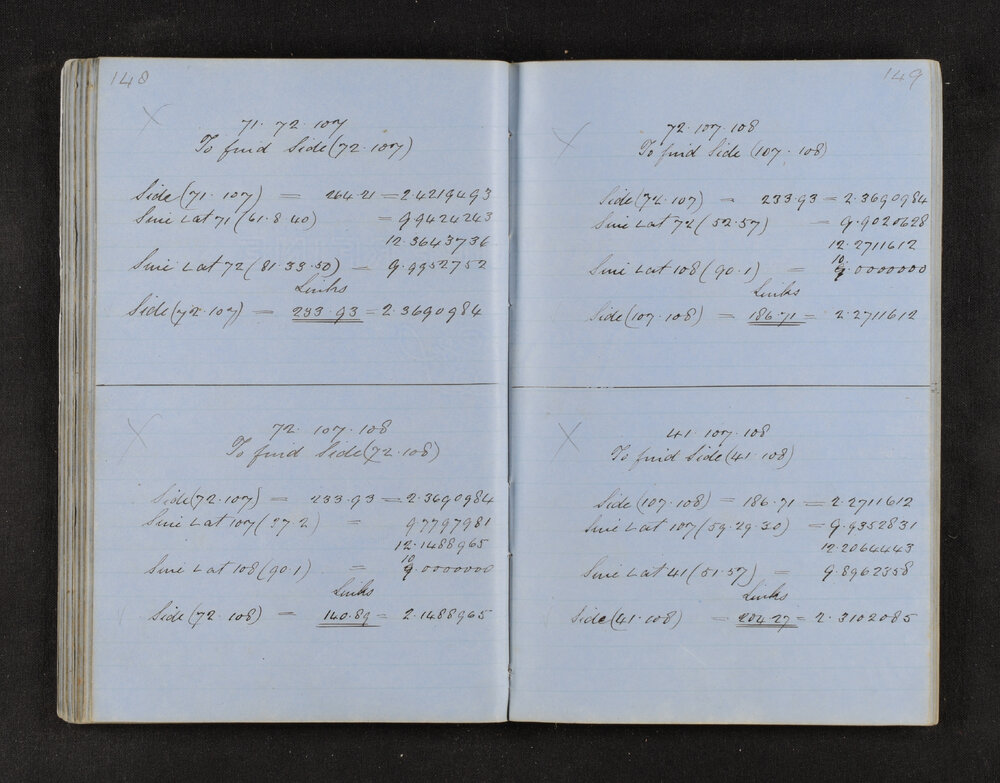 148
71 · 72 · 107
To find Side (72 · 107)
Side (71 · 107) = 264.21 = 2.4219493
Sine L at 71 (61 · 8 · 40) = 9.9424243
12.3643736
Sine L at 72 (81 · 33 · 50) = 9.9952752
Links
Side (72 · 107) = 233.93 = 2.3690984
72 · 107 · 108
To find Side (72 · 108)
Side (72 · 107) = 233.93 = 2.3690984
Sine L at 107 (37 · 2) = 9.7797981
12.1488965
10
Sine L at 108 (90 · 1) = 9.0000000
Links
Side (72 · 108) = 140.89 = 2.1488965
149
72 · 107 · 108
To find Side (107 · 108)
Side (72 · 107) = 233.93 = 2.3690984
Sine L at 72 (52 · 57) = 9.9020628
12.2711612
10
Sine L at 108 (90 · 1) = 9.0000000
Links
Side (107 · 108) = 186.71 = 2.2711612
41 · 107 · 108
To find Side (41 · 108)
Side (107 · 108) = 186.71 = 2.2711612
Sine L at 107 (59 · 29 · 30) = 9.9352831
12.2064443
Sine L at 41 (51 · 57) = 9.8962358
Links
Side (41 · 108) = 204.27 = 2.3102085